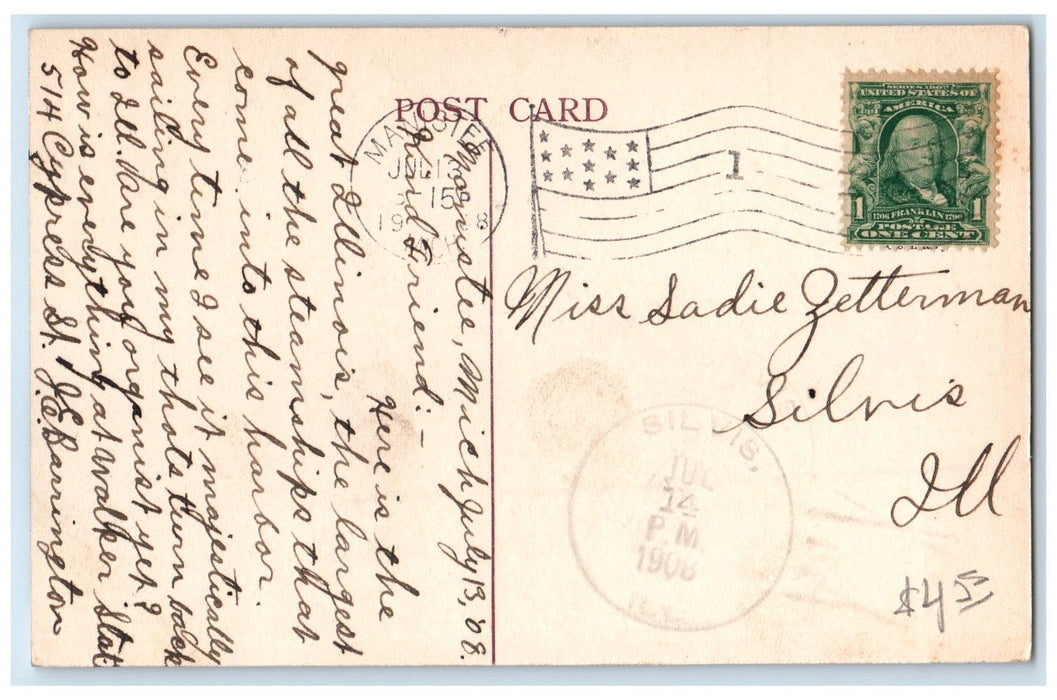 POST CARD
MANISTEE
JUL 13
15
1908
MICH
1
SERIES 1902
UNITED STATES OF
AMERICA
1 1
1706 FRANKLIN 1790
POSTAGE
ONE CENT
Manistee, Mich July 13, '08.
Friend:-
Here is the
great Illinois, the largest
of all the steamships that
come into this harbor.
Every time I see it majestically
sailing in my thots turn back
to Ill. Have you organist yet?
How is everything at Walker Stat
514 Cypress St. J.E. Barrington
Miss Sadie Zetterman
Silvis
Ill
SILVIS,
JUL
14
P.M.
1908
ILL.
$4.55